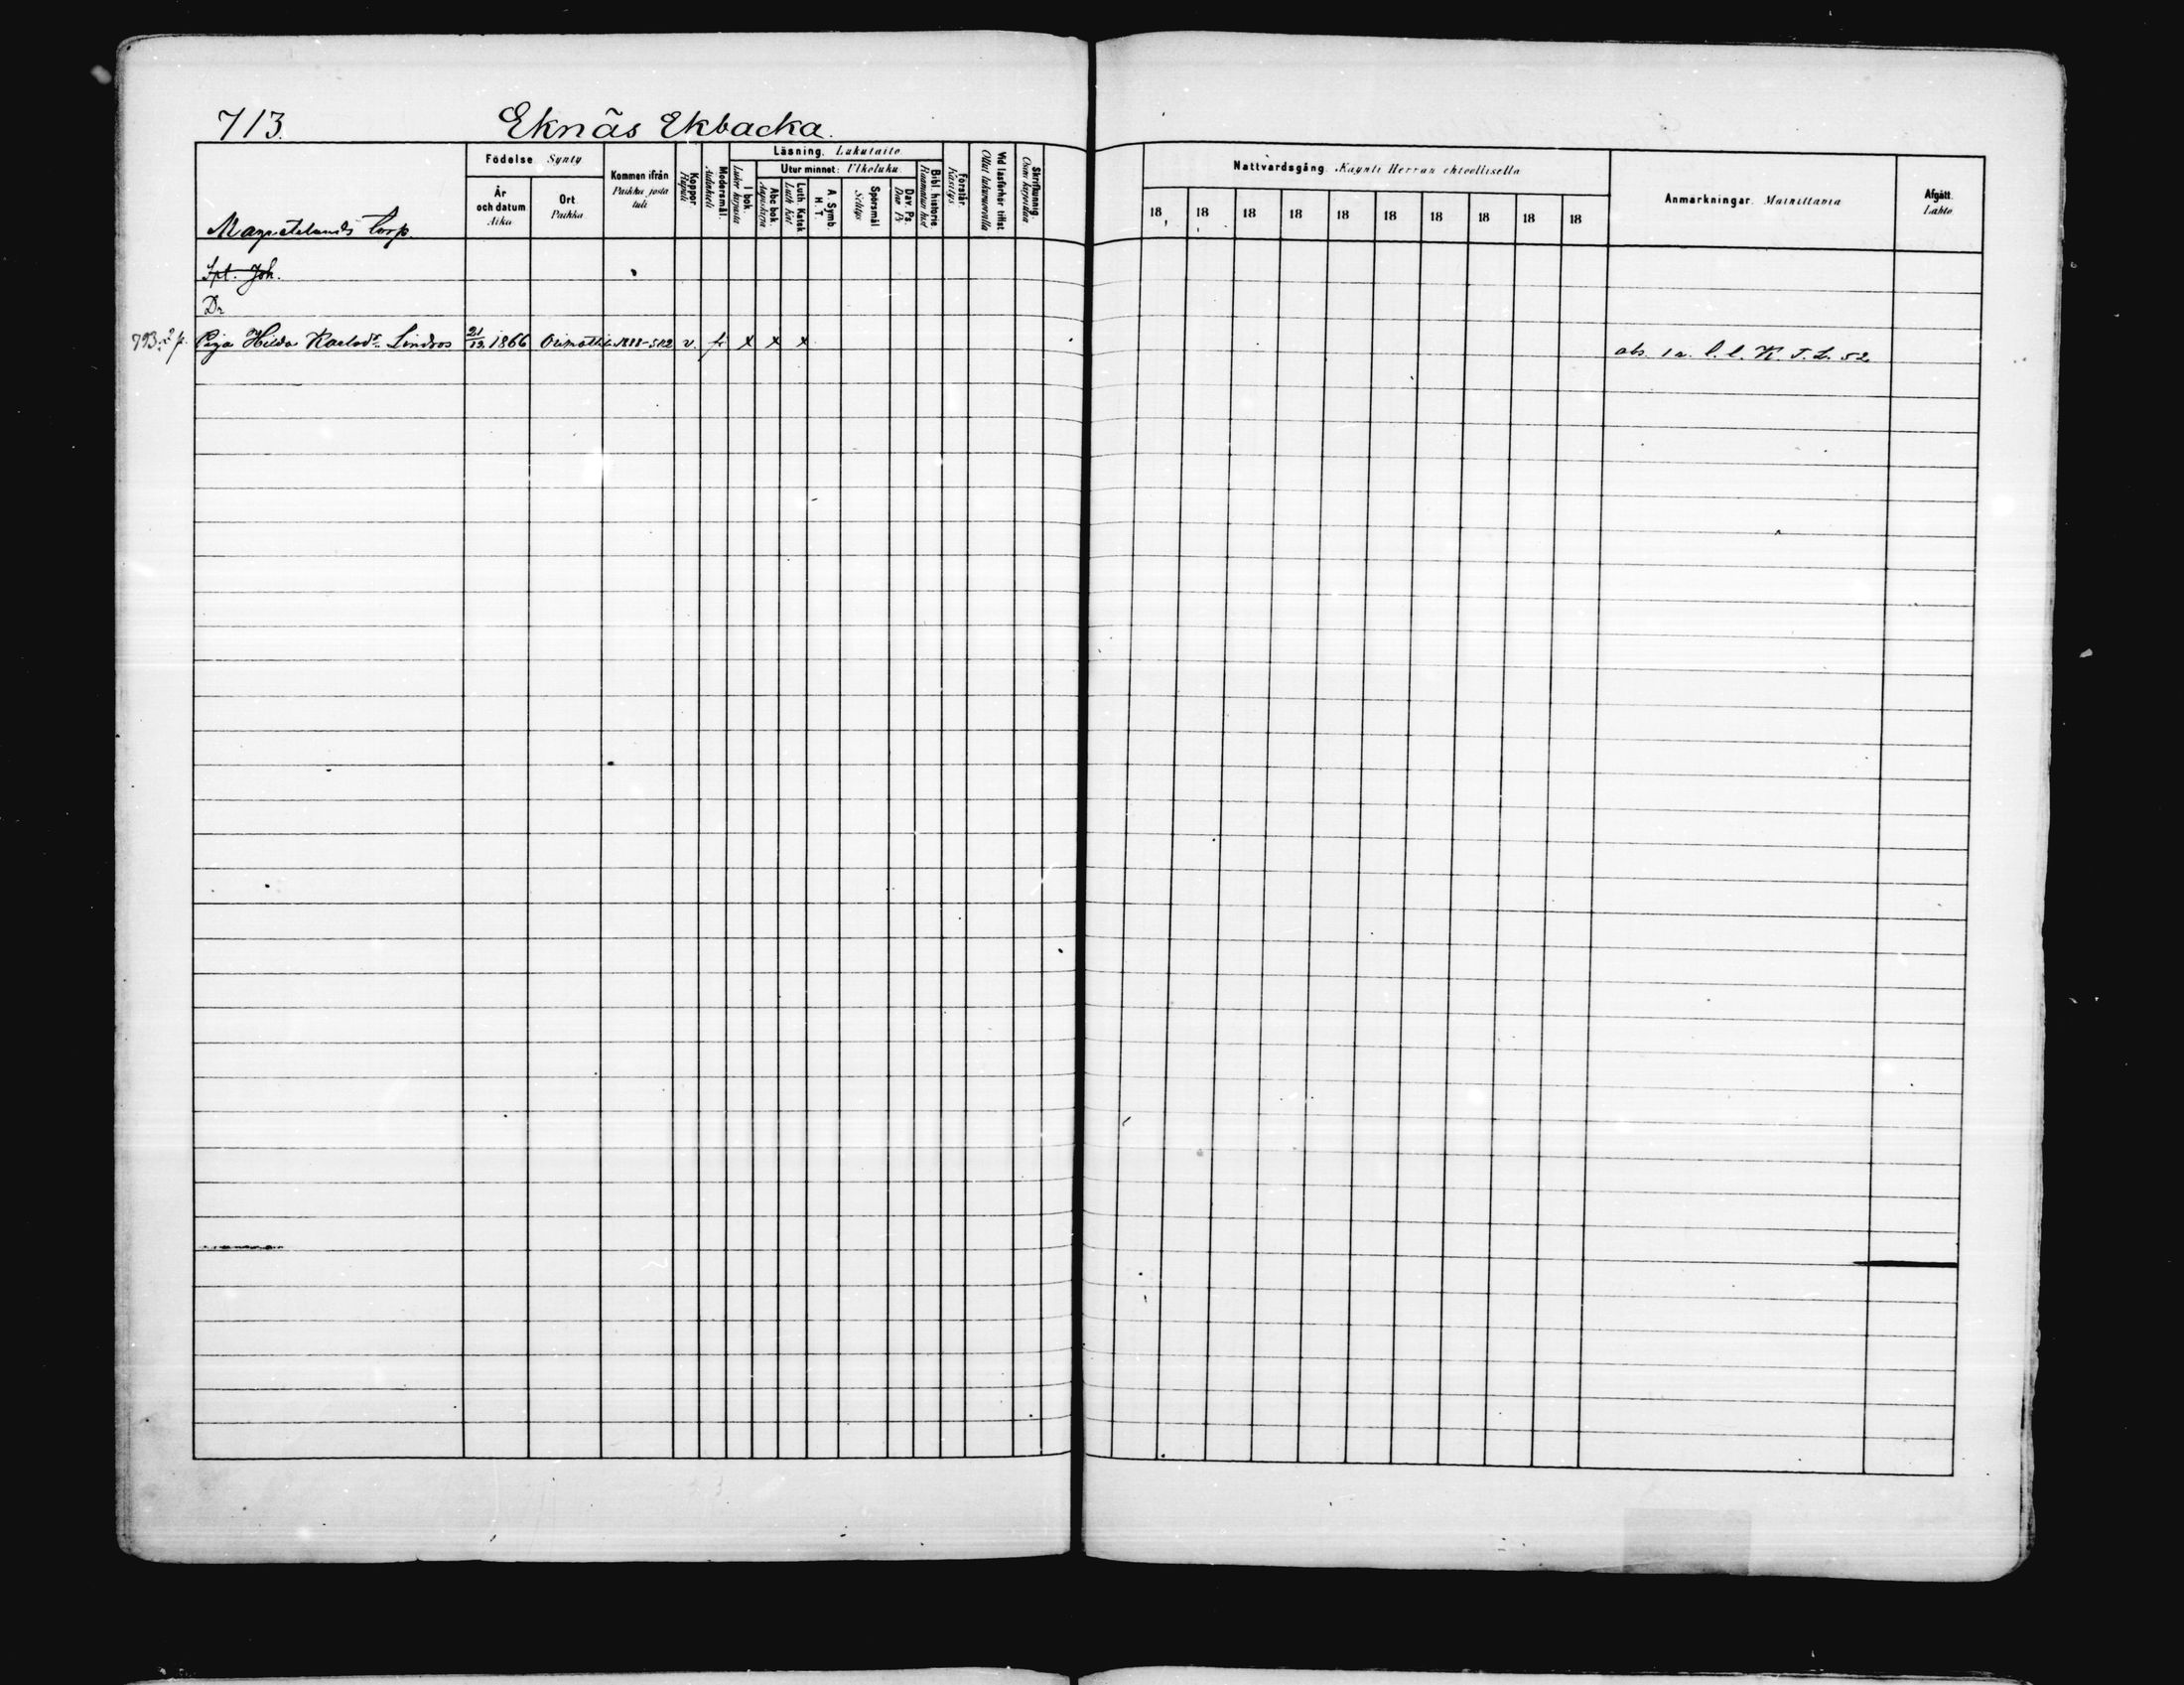 713.
Eknäs Ekbacka.
Födelse. Synty
Kommen ifrån
Paikka josta tuli
Koppor
Rupuli
Modersmål.
Äidinkieli
Läsning. Lukutaito
I bok.
Lukee kirjasta
Utur minnet: Ulkoluku.
Abc bok.
Aapiskirja
Luth. Katek.
Luth. Kat.
A. Symb. H. T.
Spörsmål
Selitys
Dav. Ps.
Daw. Ps
Bibl. historie.
Förstår.
Käsitys
Vid läsförhör tillfäst
Ollut lukuvuoroilla
Skriftkunnig.
År och datum
Aika
Ort
Paikka
Torp.
Spl. Joh.
Dr
793. 2 p. Piga Hilda Karlsdr. Lindros 21/12. 1866 Orimattila 1888-512 v. f. x x x
Nattvardsgång. Käynti Herran ehtoollisella
18 18 18 18 18 18 18 18 18 18
Anmärkningar. Muistutuksia
Afgått.
Lähtö
abs. 1 a. l. l. K. T. L. 52